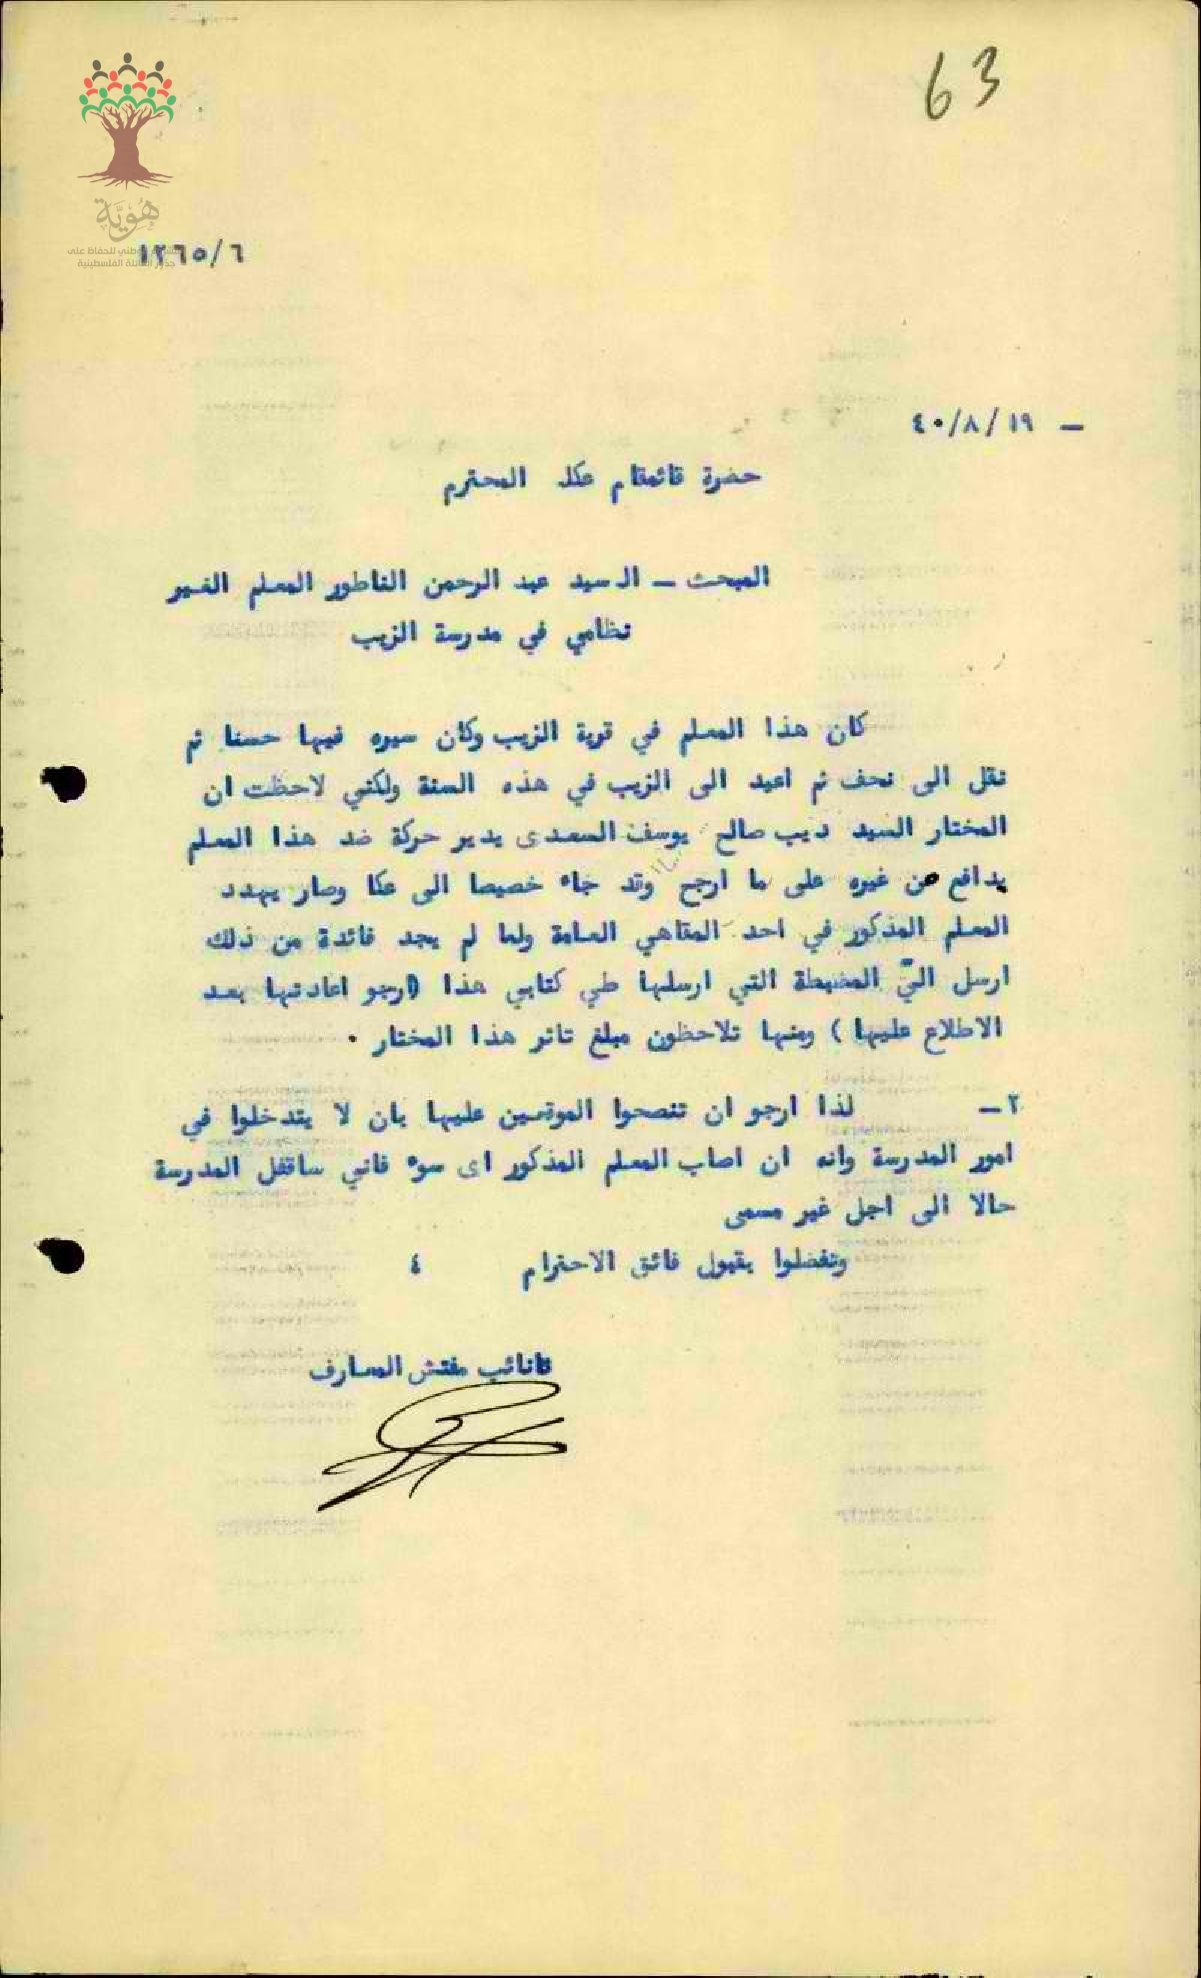 63
هوية
١٢٦٥/٦
١٩/٨/٤٠ –
حضرة قائمقام عكا المحترم
المبحث – السيد عبد الرحمن الناطور المعلم الغير
نظامي في مدرسة الزيب
كان هذا المعلم في قرية الزيب وكان سيره فيها حسنا ثم
نقل الى نحف ثم اعيد الى الزيب في هذه السنة ولكني لاحظت ان
المختار السيد ديب صالح يوسف السعدى يدير حركة ضد هذا المعلم
يدافع من غيره على ما ارجح وقد جاء خصيصا الى عكا وصار يهدد
المعلم المذكور في احد المقاهي العامة ولما لم يجد فائدة من ذلك
ارسل اليّ المضبطة التي ارسلها طي كتابي هذا (ارجو اعادتها بعد
الاطلاع عليها) ومنها تلاحظون مبلغ تاثر هذا المختار .
٢– لذا ارجو ان تنصحوا الموقعين عليها بان لا يتدخلوا في
امور المدرسة وانه ان اصاب المعلم المذكور اى سوء فاني ساقفل المدرسة
حالا الى اجل غير مسمى
وتفضلوا بقبول فائق الاحترام ٤
نائب مفتش المعارف